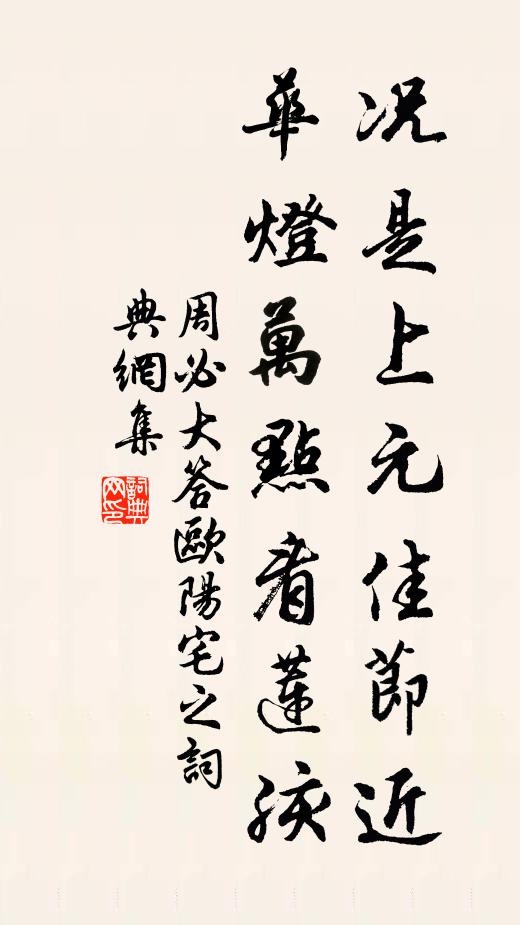 况是上元佳節近
華燈萬點看蓮孩
周必大答歐陽宅之詞
典網集
詞典網印